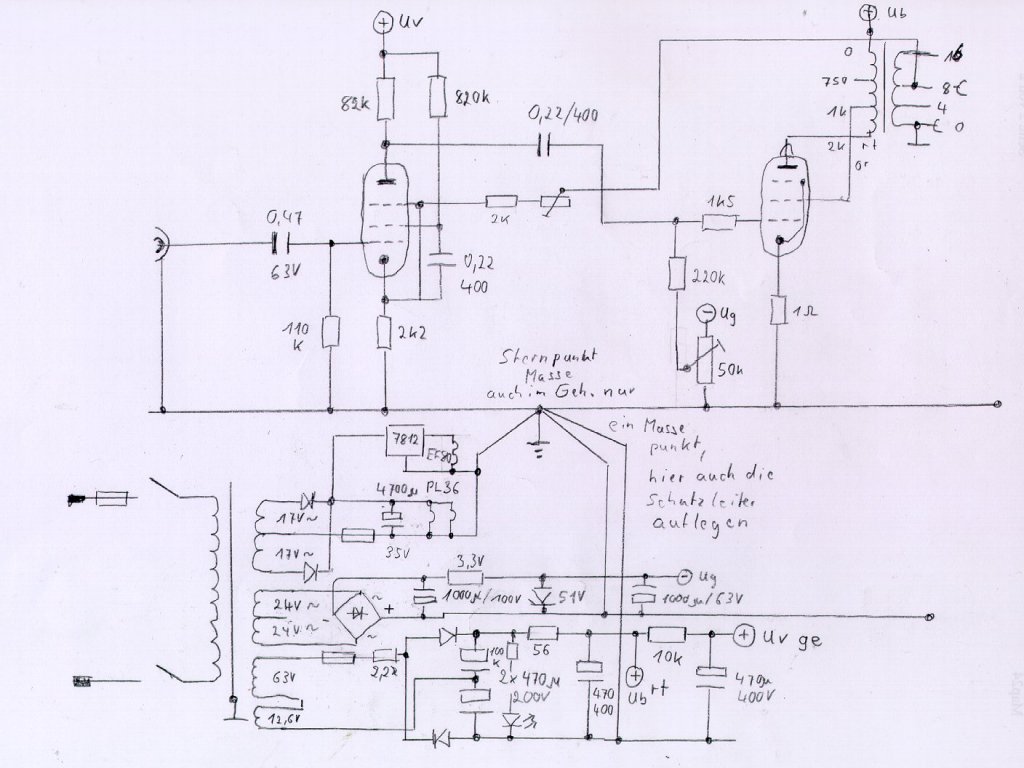 + Uv
82k
820k
0,22/400
+ Ub
0
16
75V
8
1k
4
2k
0
rt
gr
0,47
63V
2k
1k5
0,22
400
110
K
2k2
220k
- Ug
50k
1Ω
Sternpunkt
Masse
auch im Geh. nur
ein Masse
punkt,
hier auch die
Schutzleiter
auflegen
7812
EF80
4700µ
PL36
17V~
35V
17V~
3,3V
- Ug
1000µ/100V
51V
1000µ/63V
24V ~
~
-
+
24V~
~
56
+ Uv ge
100
K
10k
2,2k
2x470µ
200V
63V
470
400
+
Ub rt
470µ
400V
12,6V